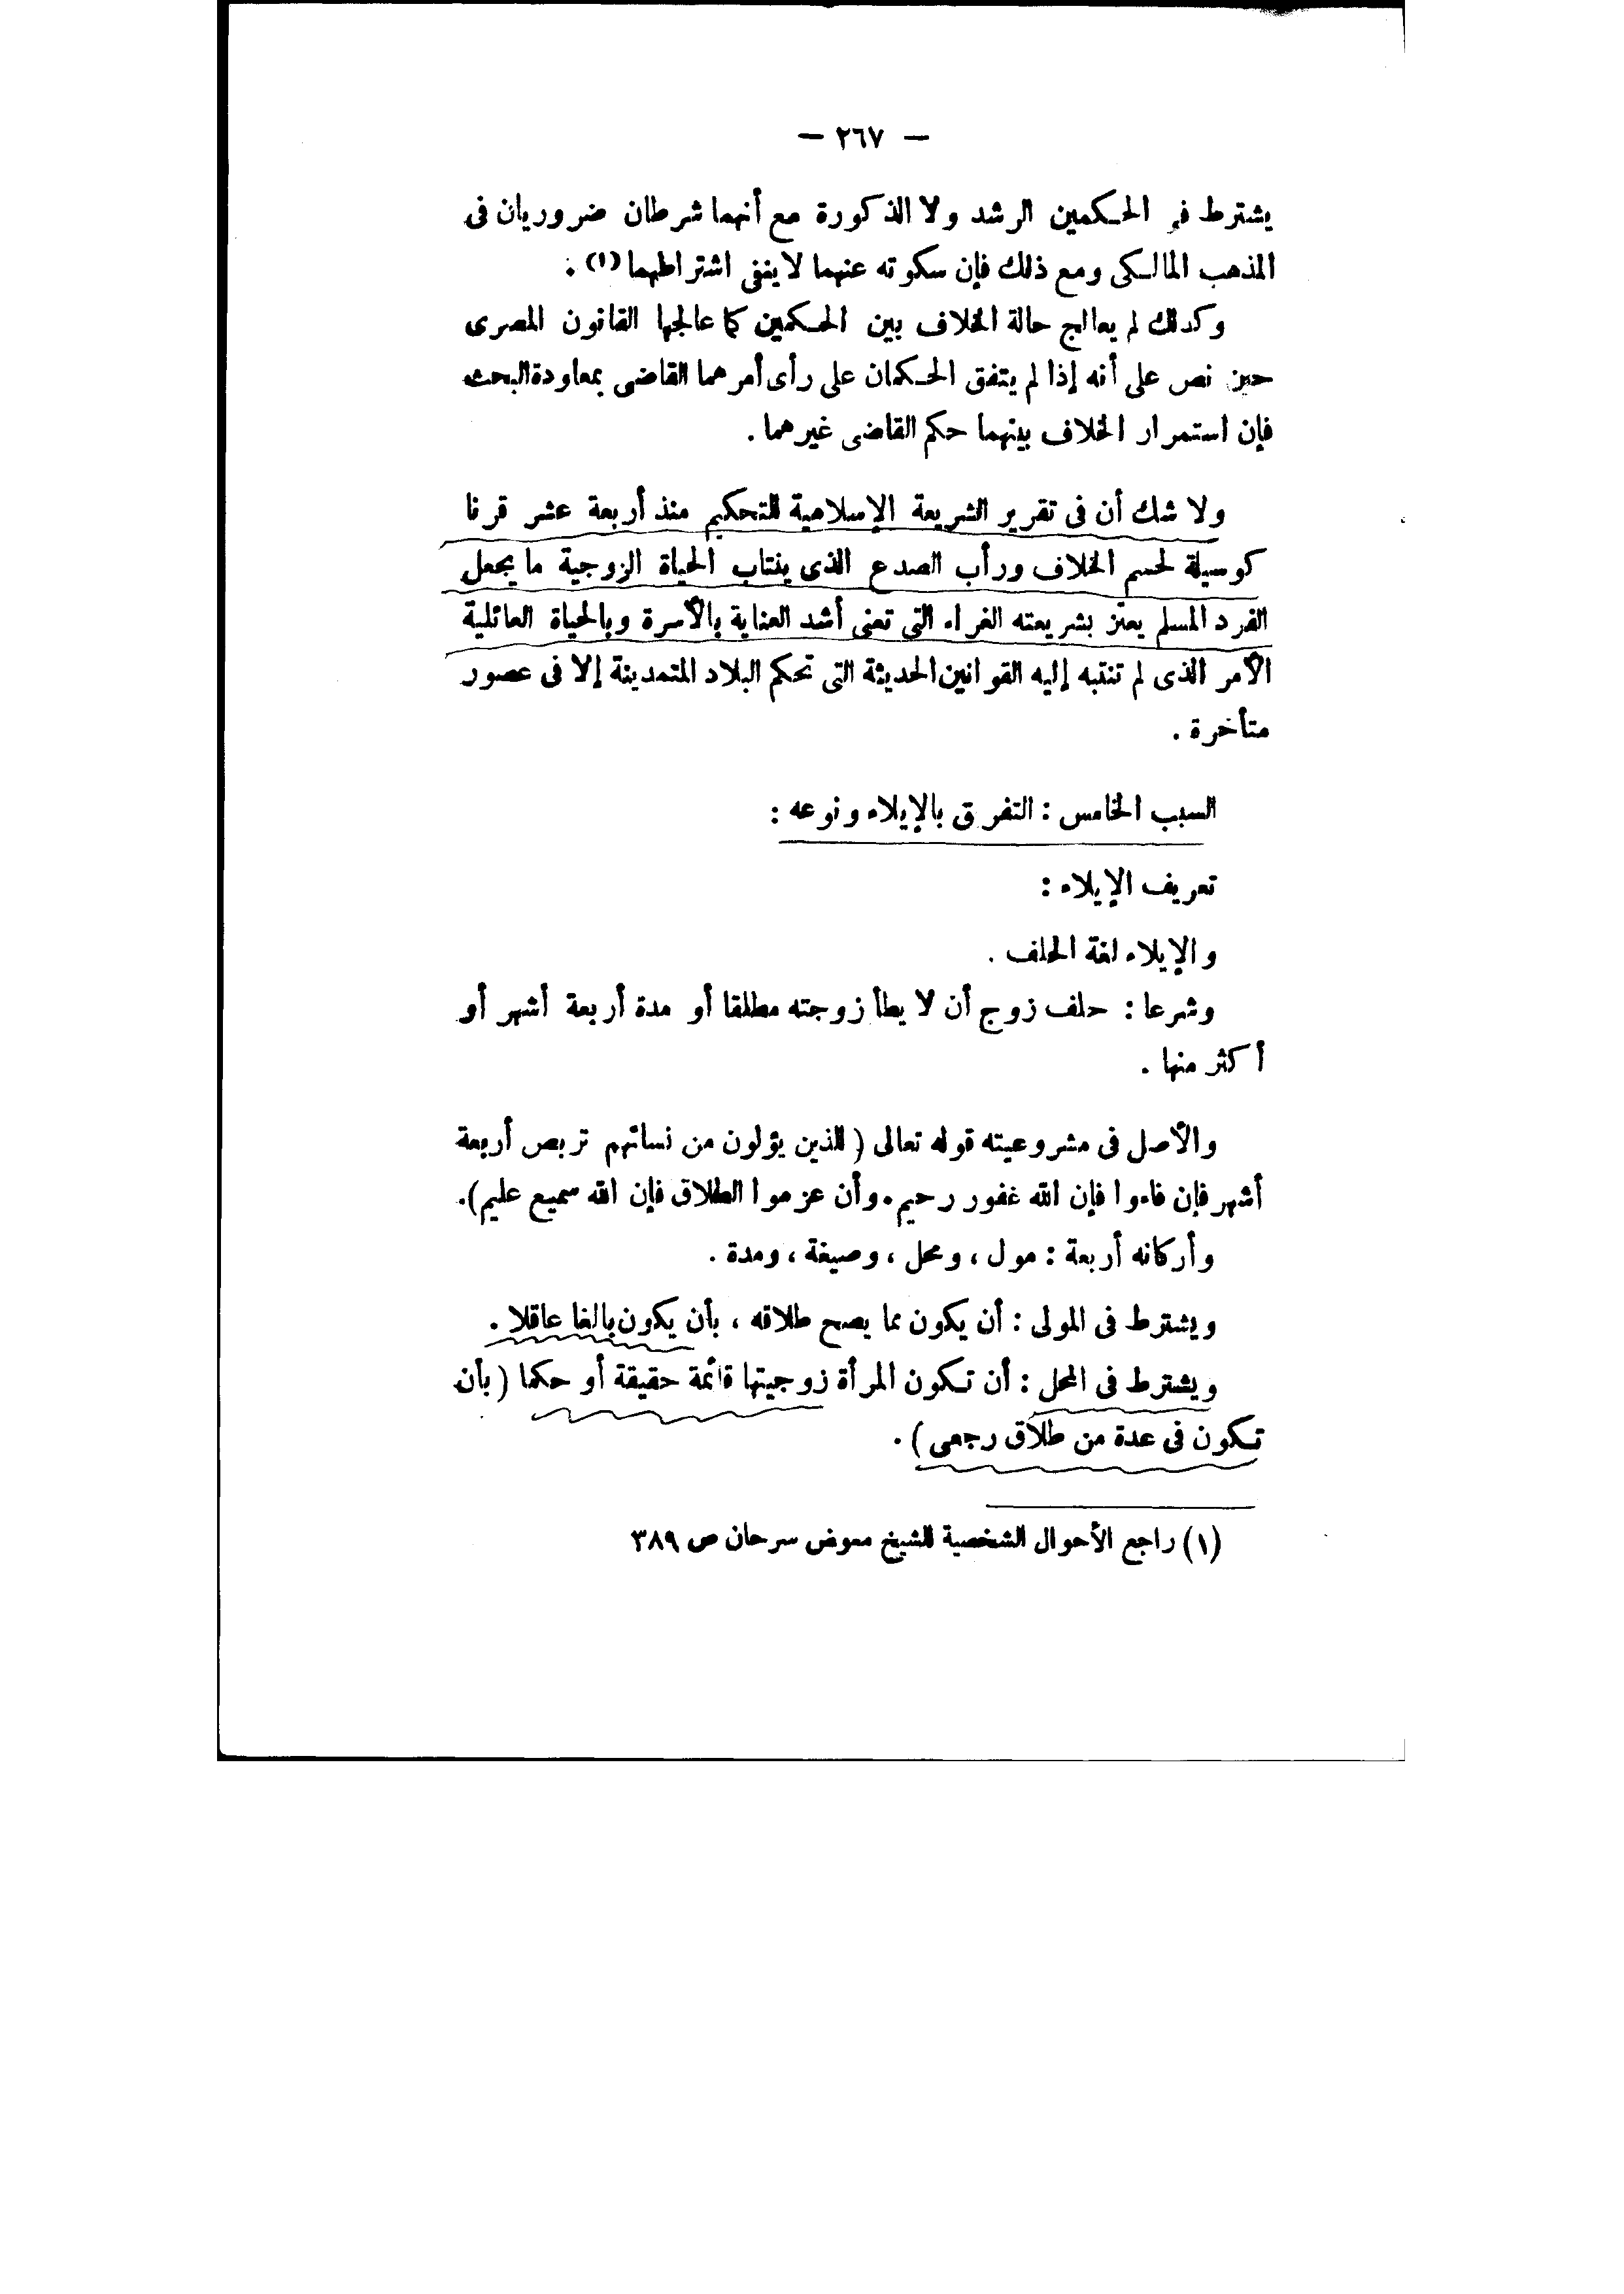 — ٢٦٧ —
يشترط فى الحكمين الرشد ولا الذكورة مع أنهما شرطان ضروريان فى
المذهب المالكى ومع ذلك فإن سكوته عنهما لا ينفى اشتراطهما (١) .
وكذلك لم يعالج حالة الخلاف بين الحكمين كما عالجها القانون المصرى
حين نص على أنه إذا لم يتفق الحكمان على رأى أمرهما القاضى بمعاودة البحث
فإن استمرار الخلاف بينهما حكم القاضى غيرهما .
ولا شك أن فى تقرير الشريعة الإسلامية للتحكيم منذ أربعة عشر قرنا
كوسيلة لحسم الخلاف ورأب الصدع الذى ينتاب الحياة الزوجية ما يجعل
الفرد المسلم يعتز بشريعته الغراء التى تعنى أشد العناية بالأسرة وبالحياة العائلية
الأمر الذى لم تنتبه إليه القوانين الحديثة التى تحكم البلاد المتمدينة إلا فى عصور
متأخرة .
السبب الخامس : التفرق بالإيلاء ونوعه :
تعريف الإيلاء :
والإيلاء لغة الحلف .
وشرعا : حلف زوج أن لا يطأ زوجته مطلقا أو مدة أربعة أشهر أو
أكثر منها .
والأصل فى مشروعيته قوله تعالى ( للذين يؤلون من نسائهم تربص أربعة
أشهر فإن فاءوا فإن الله غفور رحيم . وأن عزموا الطلاق فإن الله سميع عليم ) .
وأركانه أربعة : مول ، ومحل ، وصيغة ، ومدة .
ويشترط فى المولى : أن يكون مما يصح طلاقه ، بأن يكون بالغا عاقلا .
ويشترط فى المحل : أن تكون المرأة زوجيتها قائمة حقيقة أو حكما ( بأن
تكون فى عدة من طلاق رجعى ) .
(١) راجع الأحوال الشخصية للشيخ معوض سرحان ص ٣٨٩